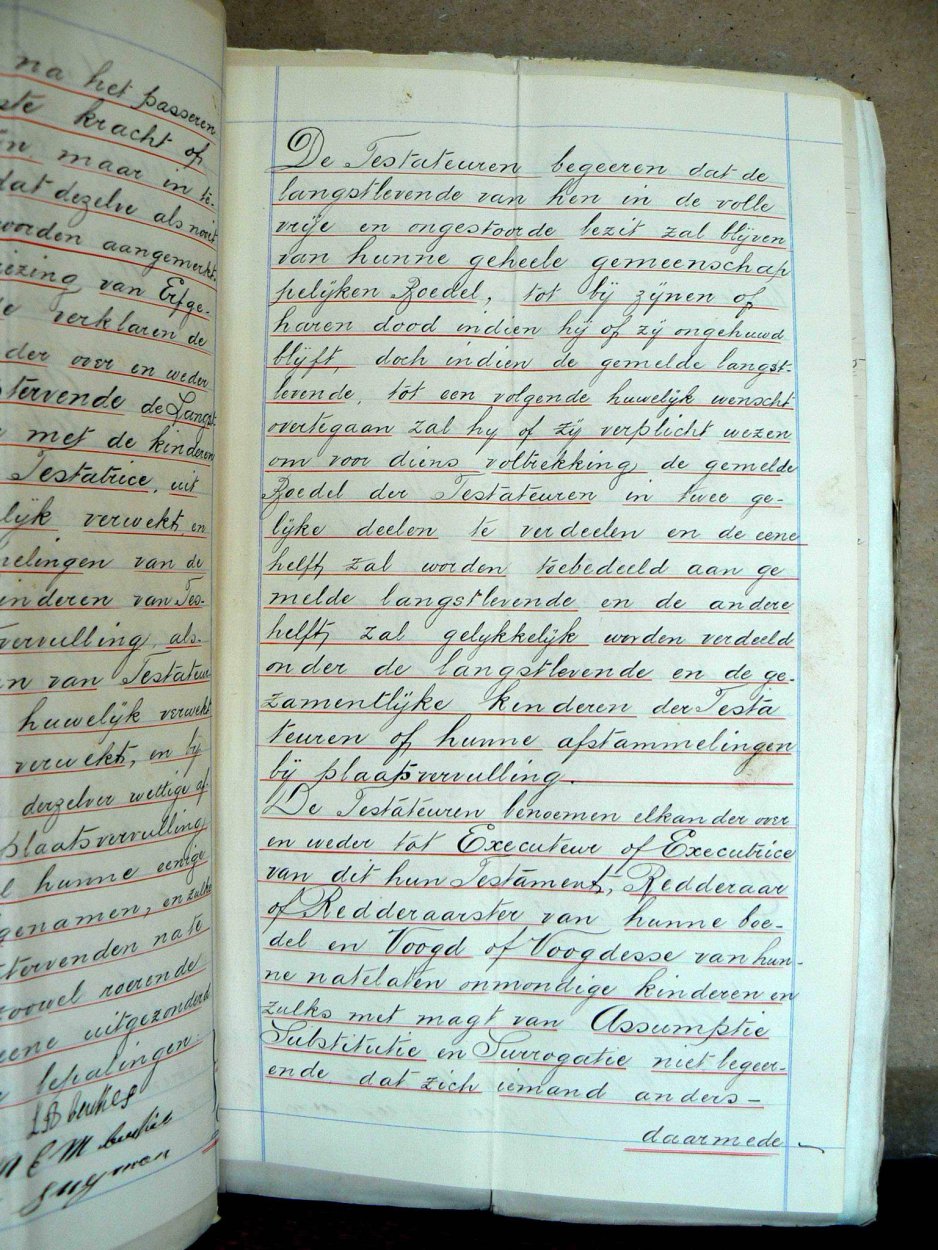 na het passeren
ste kracht of
in maar in te-
dat dezelve als nooit
worden aangemerkt.
iezing van Erfge-
e verklaren de
der over en weder
stervende de Langst
met de kinderen
Testatrice, uit
lijk verwekt, en
melingen van de
inderen van Tes-
vervulling, als-
n van Testateur
huwelijk verwekt
verwekt, en bij
derzelver wettige af-
plaatsvervulling
e hunne eenige
genamen, en zulks
stervenden na te
zoowel roerende
eene uitgezonderd
bepalingen:
De Testateuren begeeren dat de
langstlevende van hen in de volle
vrije en ongestoorde bezit zal blijven
van hunne geheele gemeenschap
pelijken Boedel, tot bij zijnen of
haren dood indien hij of zij ongehuwd
blijft, doch indien de gemelde langst-
levende, tot een volgende huwelijk wenscht
overtegaan zal hy of zij verplicht wezen
om voor diens voltrekking de gemelde
Boedel der Testateuren in twee ge-
lijke deelen te verdeelen en de eene
helft zal worden toebedeeld aan ge
melde langstlevende en de andere
helft zal gelykkelijk worden verdeeld
onder de langstlevende en de ge-
zamentlijke kinderen der Testa
teuren of hunne afstammelingen
bij plaatsvervulling.
De Testateuren benoemen elkander over
en weder tot Executeur of Executrice
van dit hun Testament, Redderaar
of Redderaarster van hunne boe-
del en Voogd of Voogdesse van hun-
ne natelaten onmondige kinderen en
zulks met magt van Assumptie
Substitutie en Surrogatie niet begeer-
ende dat zich iemand anders-
daarmede